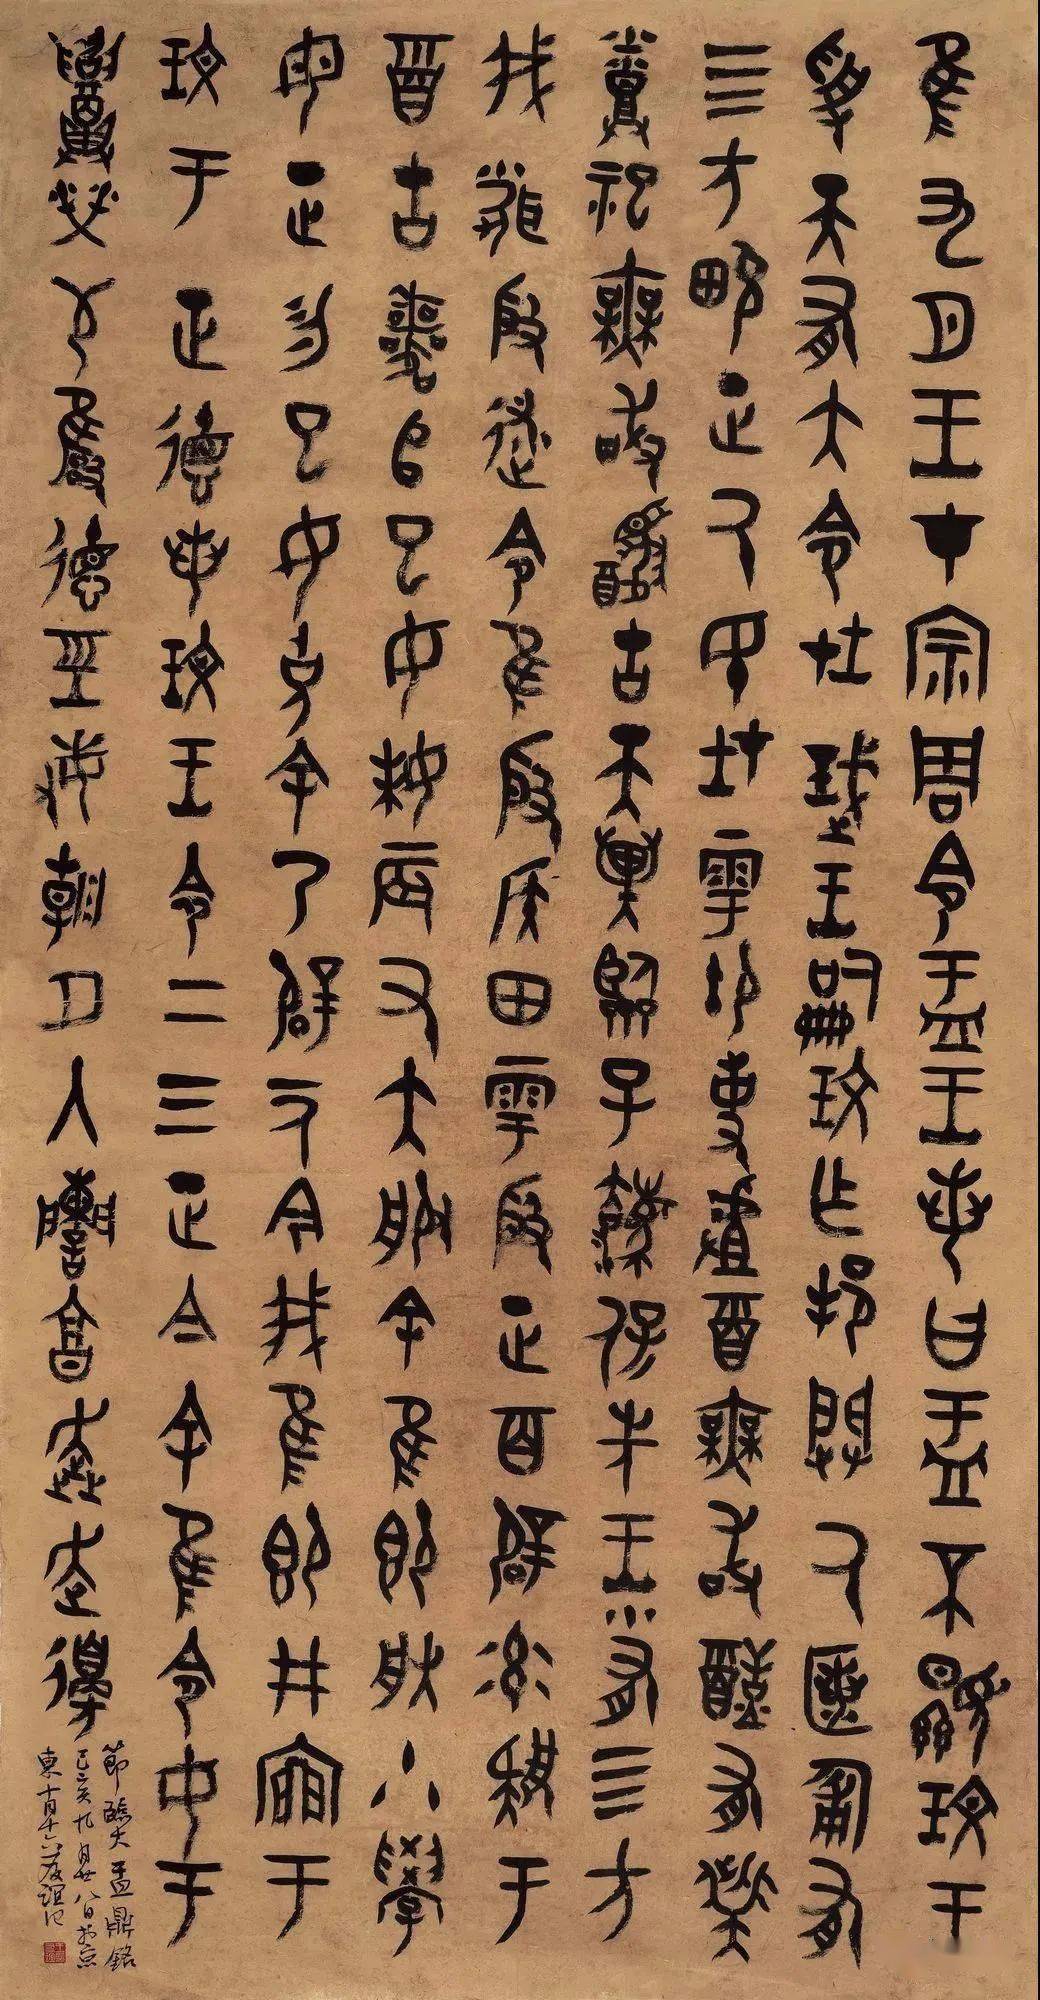 隹九月王才宗周令盂王若曰盂不顯玟王
受天有大令在珷王嗣玟乍邦闢氒匿匍有
四方畯正氒民在雩御事䖒酉無敢有祡
烝祀無敢古天異臨子灋保先王有四方
我聞殷述令隹殷邊侯田雩殷正百辟率肄于
酉古喪𠂤巳女妹辰又大服余隹即朕小學
女勿余乃辟一人今我隹即井㐭于
玟王正德若玟王令二三正今余隹令女盂
召榮敬雝德巠敏朝夕入讕享奔走
節臨大盂鼎銘
己亥九月廿八日於京
東十月十六夜誼記